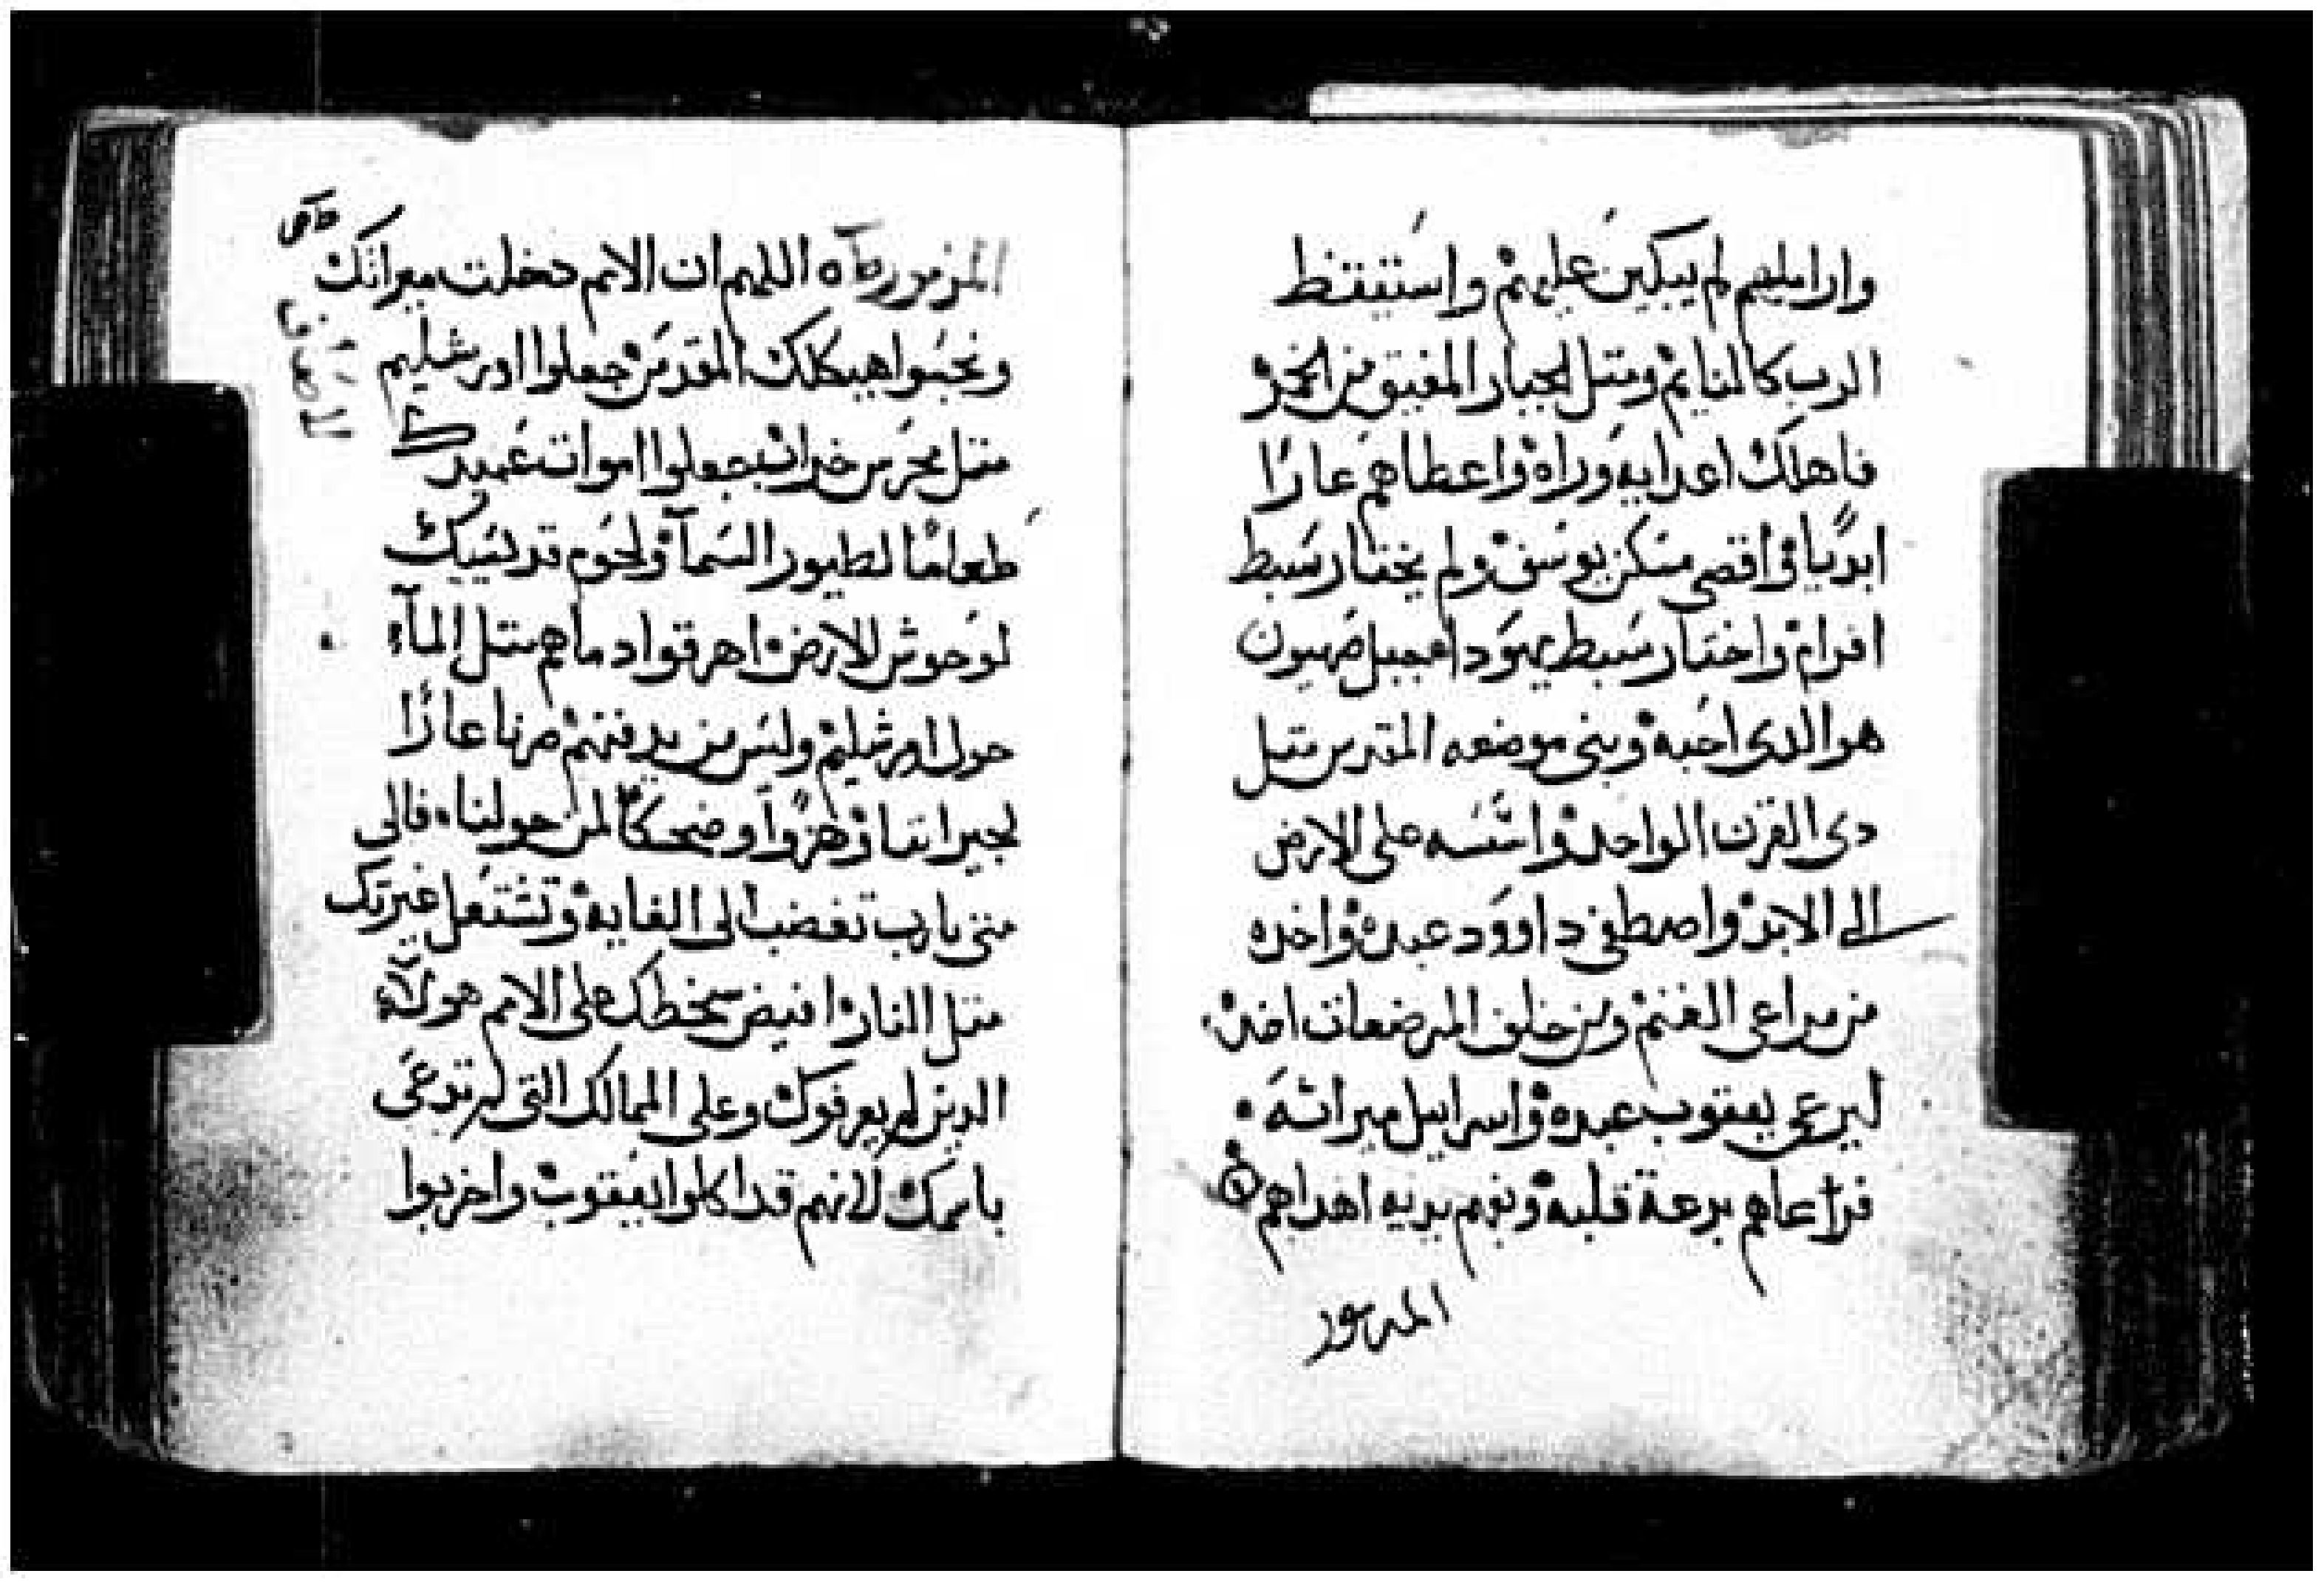 واراملهم لم يبكين عليهم واستيقظ
الرب كالنايم ومتل الجبار المفيق من الخمر
فاهلك اعدايه وراه واعطاهم عارًا
ابديًا واقصى مسكن يوسف ولم يختار سبط
افرام واختار سبط يهودا جبل صهيون
هو الدى احبه وبنى موضعه المقدس متل
دى القرن الواحد واسسه على الارض
الى الابد واصطفى داوود عبده واخده
من مراعى الغنم ومن خلف المرضعات اخده
ليرعى يعقوب عبده واسراييل ميراته
فرعاهم بدعة قلبه وبفهم يديه اهداهم
المزمور
المزمور اللهم ان الامم دخلت ميراتك
ونجسوا هيكلك المقدس جعلوا اورشليم
متل محرس خراب جعلوا اموات عبيدك
طعامًا لطيور السمآ ولحوم قديسيك
لوحوش الارض اهرقوا دماهم متل المآ
حول اورشليم وليس من يدفنهم صرنا عارًا
لجيراننا وهزوًا وضحكًا لمن حولنا فالى
متى يارب تغضب الى الغايه وتشتعل غيرتك
متل النار افيض سخطك على الامم هولاى
الدين لم يعرفوك وعلى الممالك التى لم تدعى
باسمك لانهم قد اكلوا يعقوب واخربوا